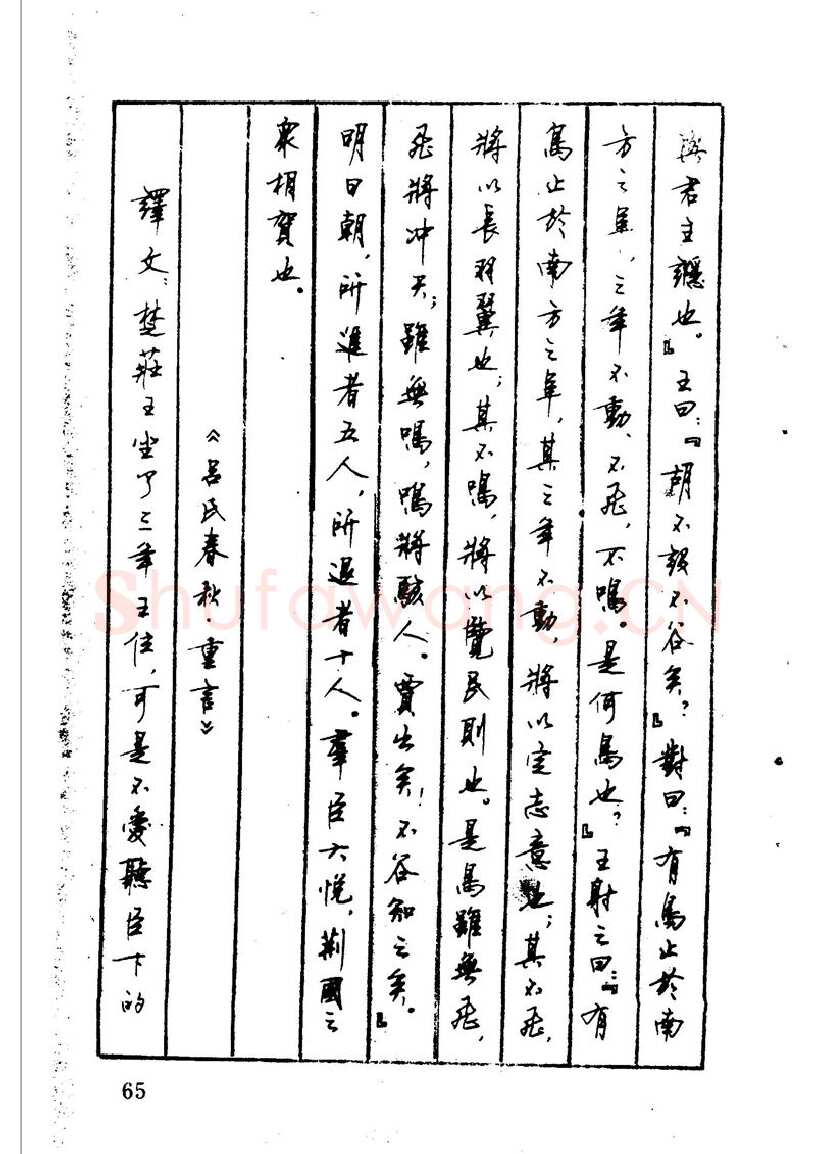 與君主讔也。』王曰：『胡不設不谷矣？』對曰：『有鳥止於南
方之阜，三年不動，不飛，不鳴。是何鳥也？』王射之曰：『有
鳥止於南方之阜，其三年不動，將以定志意也；其不飛，
將以長羽翼也；其不鳴，將以覽民則也。是鳥雖無飛，
飛將冲天；雖無鳴，鳴將駭人。賈出矣！不谷知之矣。』
明日朝，所進者五人，所退者十人。羣臣大悅，荆國之
衆相賀也。
《呂氏春秋 重言》
譯文：楚莊王坐了三年王位，可是不愛聽臣下的
65
Shufawang.CN